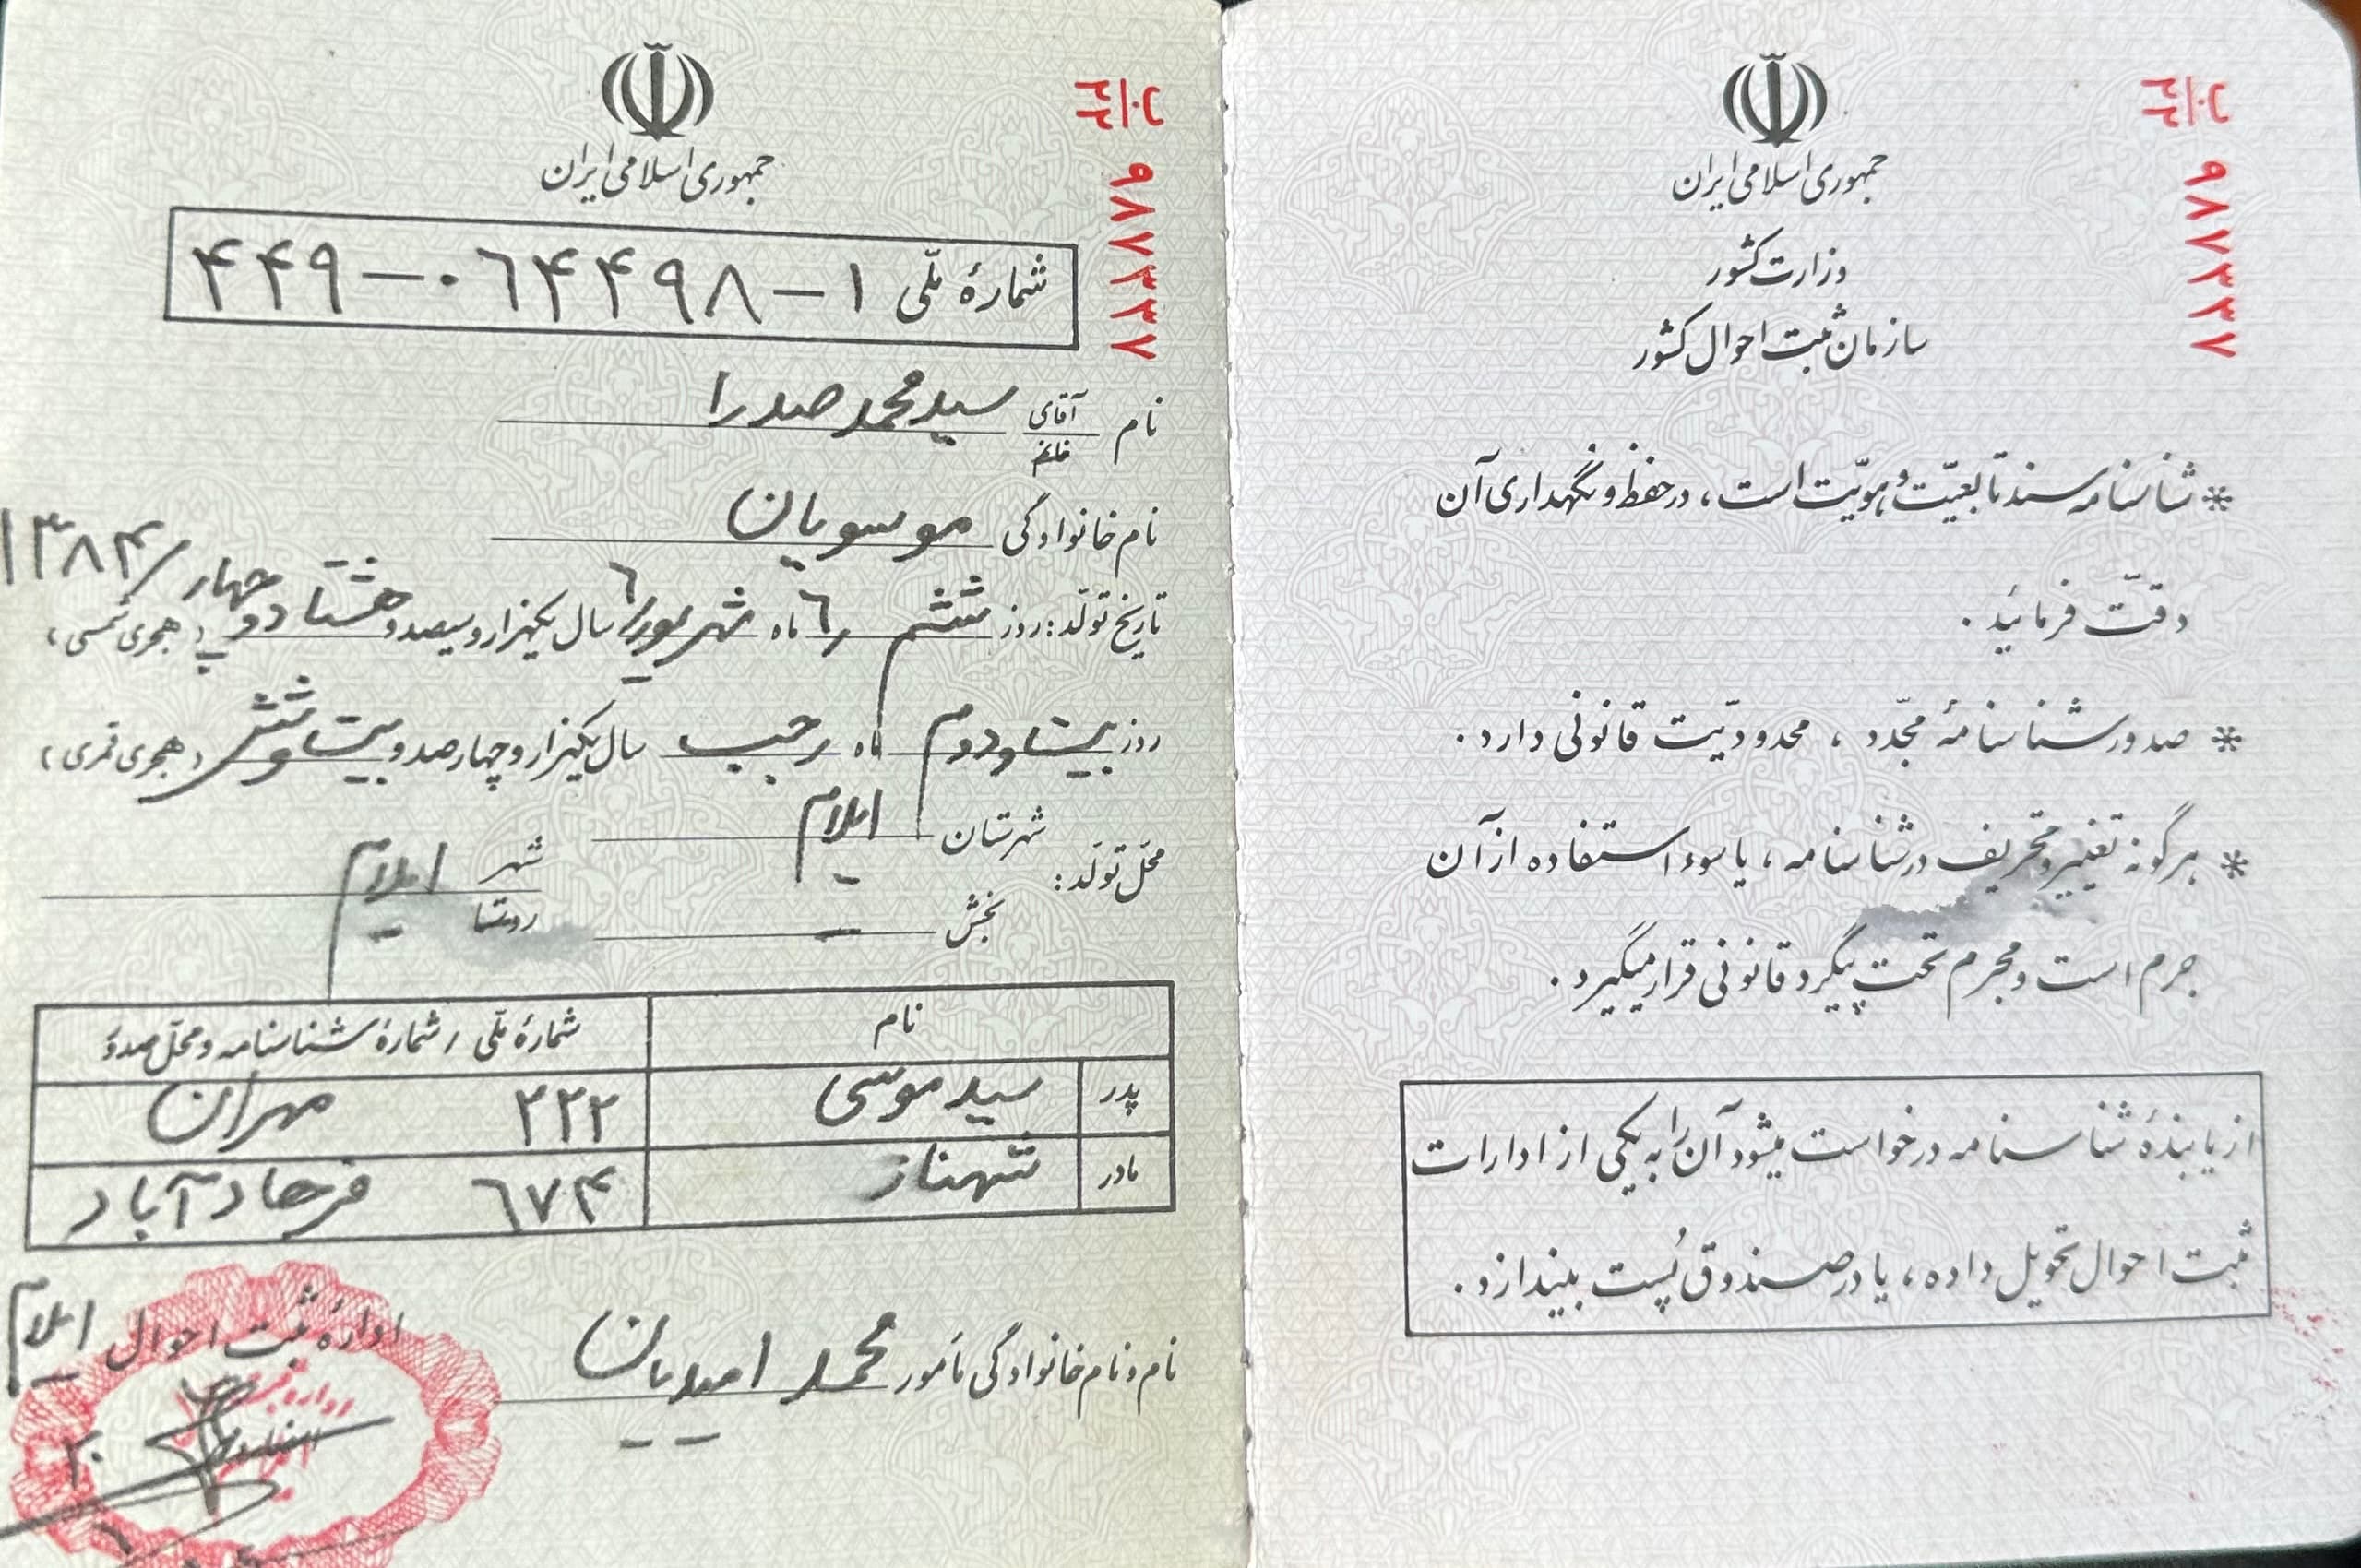 جمهوری اسلامی ایران
وزارت کشور
سازمان ثبت احوال کشور
۹۸۷۳۳۷
* شناسنامه سند تابعیّت و هویّت است ، در حفظ و نگهداری آن
دقّت فرمائید .
* صدور شناسنامهٔ مجّدد ، محدودیّت قانونی دارد .
* هرگونه تغییر و تحریف در شناسنامه ، یا سوء استفاده از آن
جرم است و مجرم تحت پیگرد قانونی قرار میگیرد .
از یابندهٔ شناسنامه درخواست میشود آن را به یکی از ادارات
ثبت احوال تحویل داده ، یا در صندوق پُست بیندازد .
جمهوری اسلامی ایران
۹۸۷۳۳۷
شمارهٔ ملّی ۴۴۹-۰۶۴۴۹۸-۱
نام آقای خانم سید محمد صدرا
نام خانوادگی موسویان
تاریخ تولّد : روز ششم ۶ ماه شهریور ۶ سال یکهزار و سیصد و هشتاد و چهار ۱۳۸۴/ (هجری شمسی)
روز بیست و دوم ماه رجب سال یکهزار و چهارصد و بیست و شش (هجری قمری)
محلّ تولّد : شهرستان ایلام شهر ایلام
بخش — روستا
نام شمارهٔ ملّی / شمارهٔ شناسنامه و محلّ صدور
پدر سید موسی ۲۲۲ مهران
مادر شهناز ۶۷۴ فرهادآباد
نام و نام خانوادگی مأمور محمد امیدیان
ادارهٔ ثبت احوال ایلام